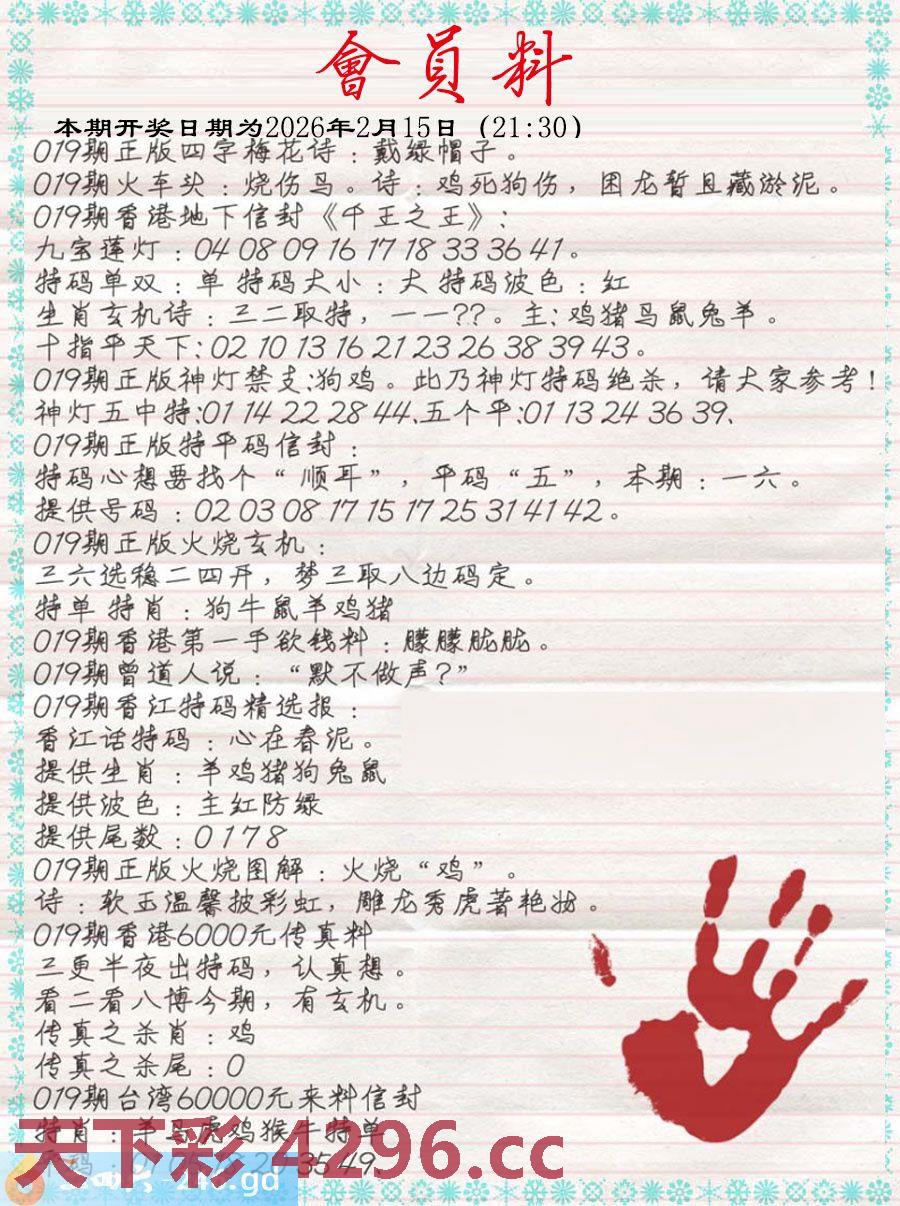 會員料
本期开奖日期为2026年2月15日（21:30）
019期正版四字梅花诗：戴绿帽子。
019期火车头：烧伤鸟。诗：鸡死狗伤，困龙暂且藏淤泥。
019期香港地下信封《千王之王》：
九宝莲灯：04 08 09 16 17 18 33 36 41。
特码单双：单 特码大小：大 特码波色：红
生肖玄机诗：三二取特，一一??。主：鸡猪马鼠兔羊。
十指平天下：02 10 13 16 21 23 26 38 39 43。
019期正版神灯禁支：狗鸡。此乃神灯特码绝杀，请大家参考！
神灯五中特：01 14 22 28 44.五个平：01 13 24 36 39.
019期正版特平码信封：
特码心想要找个“顺耳”，平码“五”，本期：一六。
提供号码：02 03 08 17 15 17 25 31 41 42。
019期正版火烧玄机：
三六选稳二四开，梦三取八边码定。
特单 特肖：狗牛鼠羊鸡猪
019期香港第一手欲钱料：朦朦胧胧。
019期曾道人说：“默不做声？”
019期香江特码精选报：
香江话特码：心在春泥。
提供生肖：羊鸡猪狗兔鼠
提供波色：主红防绿
提供尾数：0 1 7 8
019期正版火烧图解：火烧“鸡”。
诗：软玉温馨披彩虹，雕龙秀虎著艳妆。
019期香港6000元传真料
三更半夜出特码，认真想。
看二看八博今期，有玄机。
传真之杀肖：鸡
传真之杀尾：0
019期台湾60000元来料信封
特肖：羊马虎鸡猴牛特单
35 49.
天下彩 4296.cc
246.gd